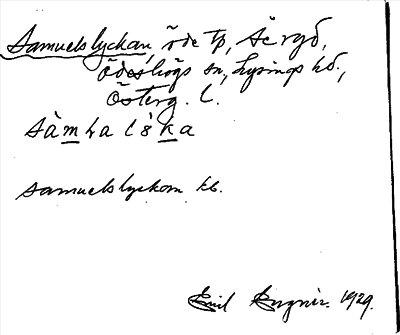 Samuelslyckan, öde tp, Se ryd,
Ödeshögs sn, Lysings hd.,
Österg. l.
sàmhalska
samuelslyckom kb.
Emil 1929.